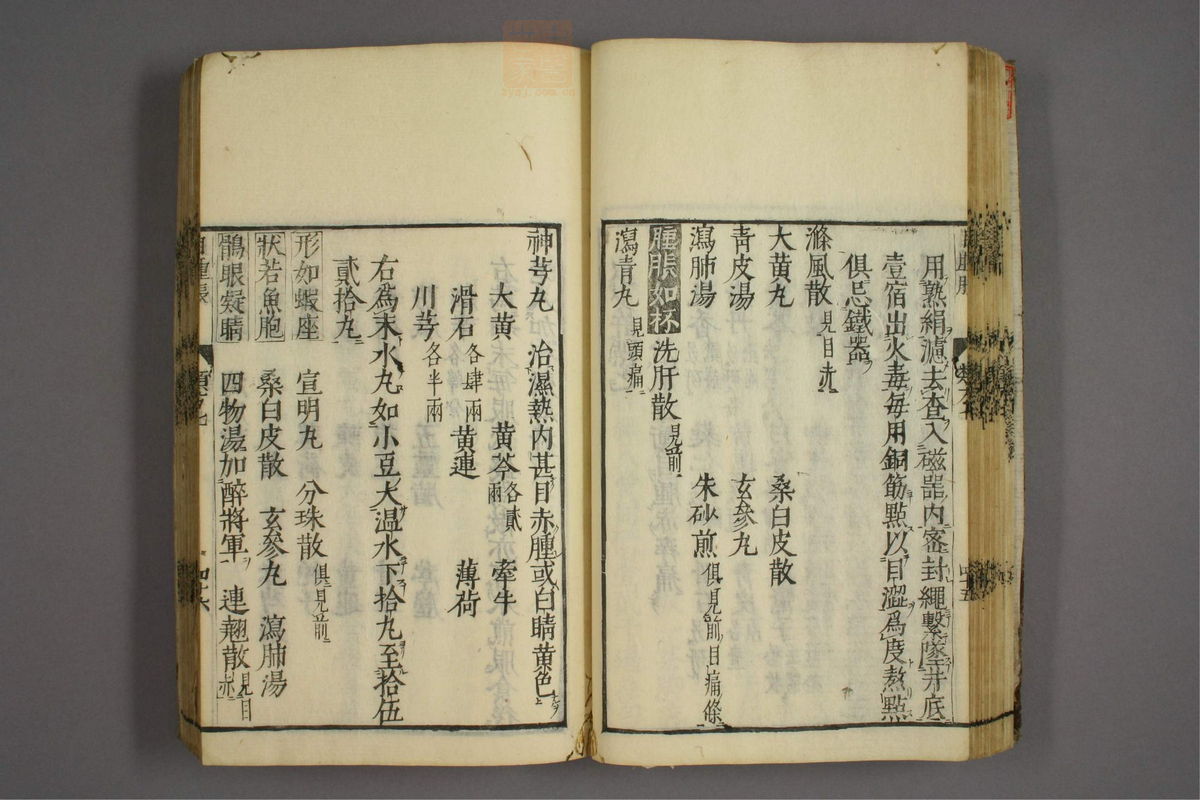 用熟絹濾去查入磁器内密封繩繫墜井底
壹宿出火毒每用銅筋點以目澀爲度熬點
俱忌鐵器
滌風散見目赤
大黄丸 桑白皮散
青皮湯 玄參丸
瀉肺湯 朱砂煎俱見前目痛條
腫脹如杯 洗肝散見前
瀉青丸見頭痛
神芎丸 治濕熱内甚目赤腫或白睛黄色
大黄 黄芩各貳兩 牽牛
滑石各肆兩 黄連 薄荷
川芎各半兩
右爲末水丸如小豆大温水下拾丸至拾伍
貳拾丸
形如蝦座 宣明丸 分珠散俱見前
狀若魚胞 桑白皮散 玄參丸 瀉肺湯
鶻眼凝睛 四物湯加醉將軍 連翹散見目赤